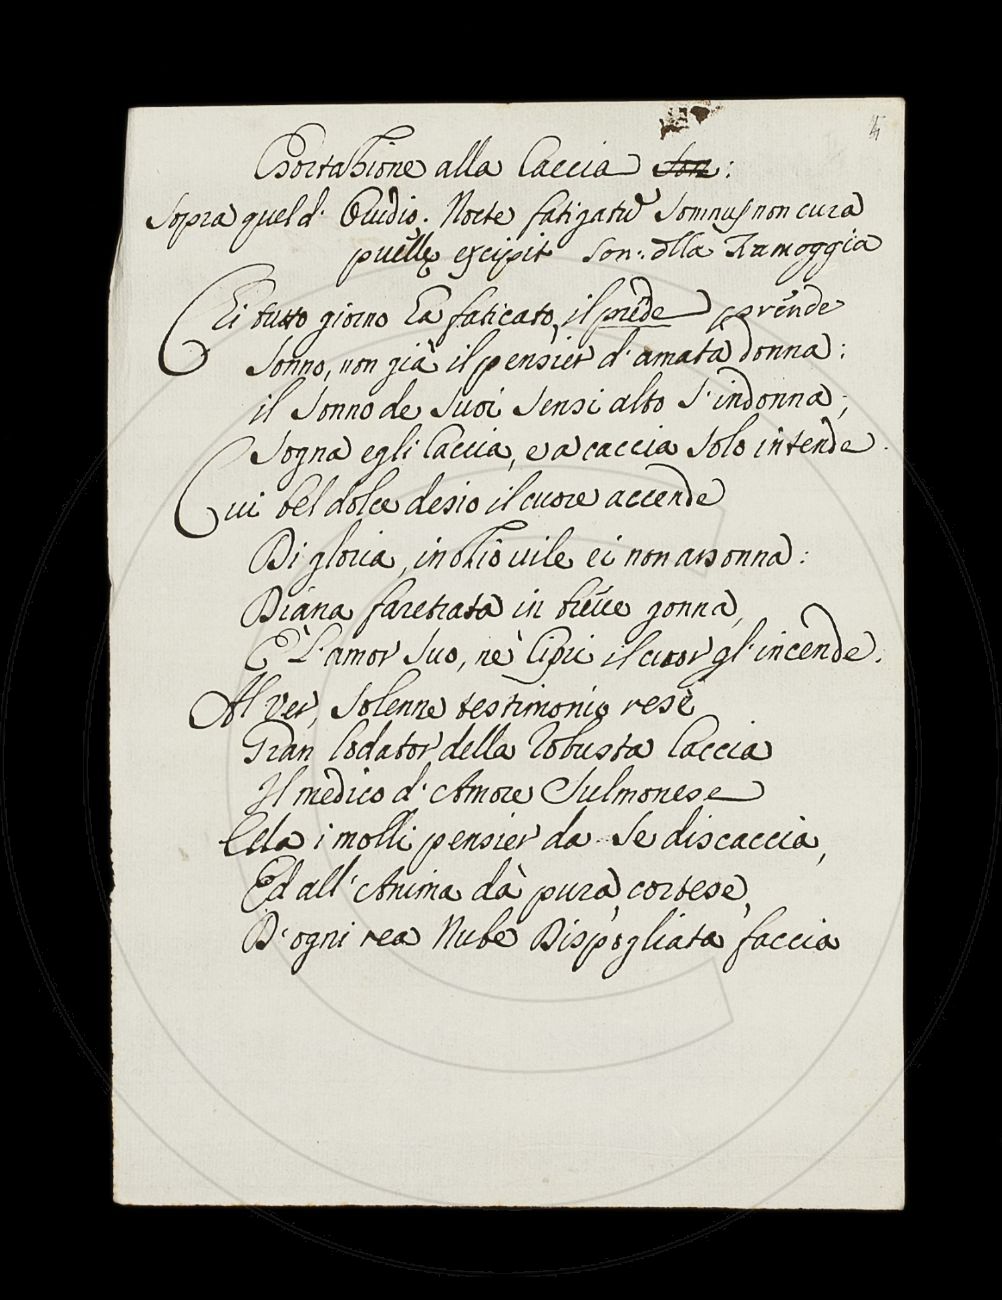 4
Esortazione alla Caccia Son:
Sopra quel d'Ouidio. Nocte fatigatū Somnus non cura
puellę excipit Son: olla Ramoggia
Ei tutto giorno ha faticato, il prēde prēnde
Sonno, non già il pensier d'amata donna:
il Sonno de Suoi Sensi alto S'indonna;
Sogna egli Caccia, e a caccia Solo intende.
Cui bel dolce desio il cuore accende
Di gloria, in otio uile ei non assonna:
Diana faretrata in brieue gonna,
È L'amor Suo, nè Cipri il cuor gl'incende.
Al ver, Solenne testimonio rese
Gran lodator della robusta Caccia
Il medico d'Amore Sulmonese
Ella i molli pensier da Se discaccia,
Ed all'Anima dà pura, cortese,
D'ogni rea Nube Dispogliata faccia